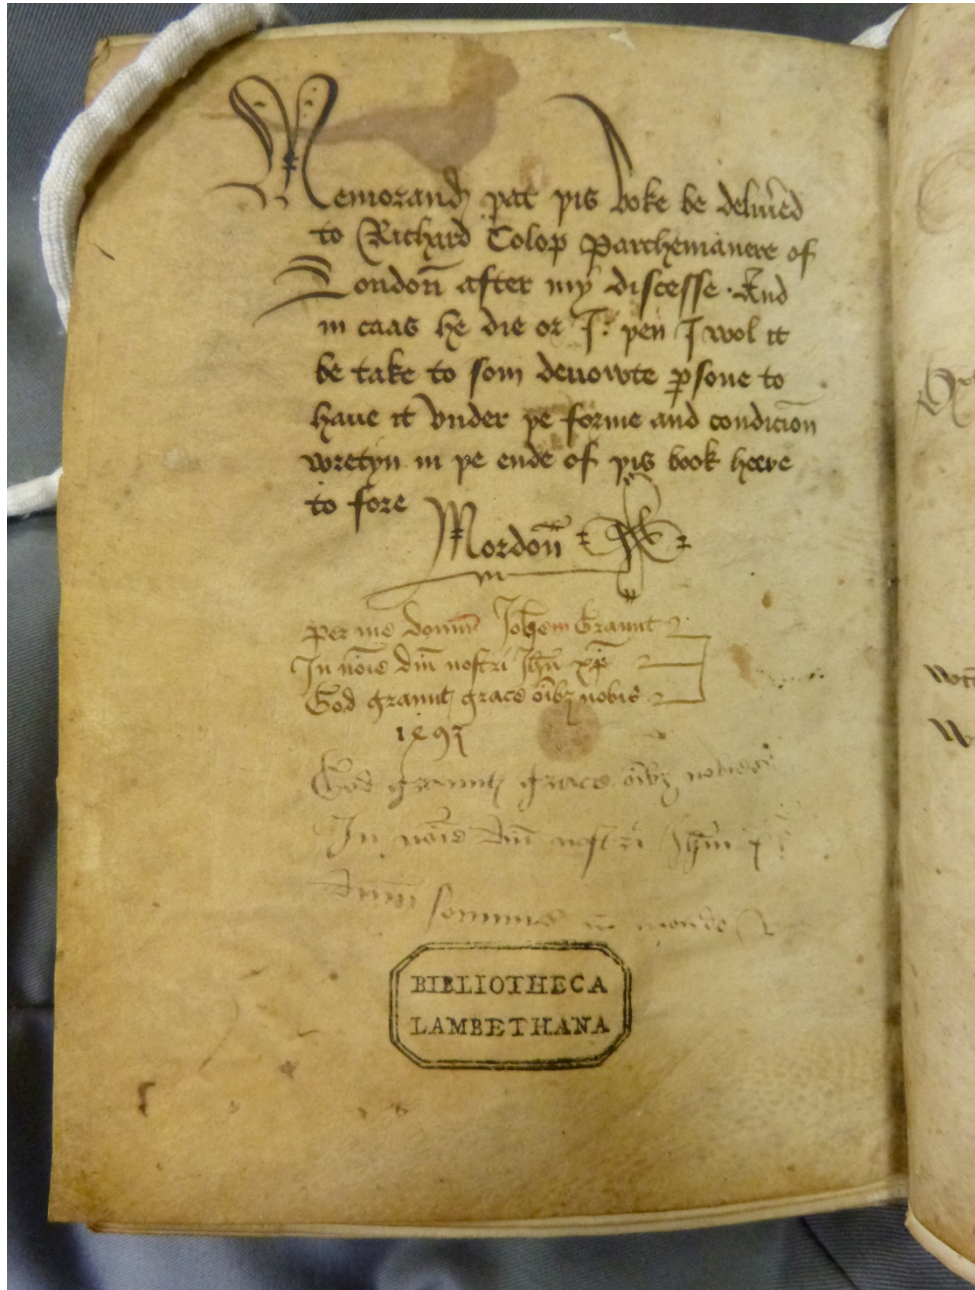 Memorand þat þis boke be delived
to Richard Colop Parchemanere of
London after my discesse . And
in caas he die or I : þen I wol it
be take to som devowte psone to
have it vnder þe forme and condicion
wretyn in þe ende of þis book heere
to fore
Mordon
per me domin Johem Graunt
In noie dni nostri Jhu xpi
God graunt grace oibz nobis
God graunt grace oibz nobis
In noie dni nostri Jhu
BIBLIOTHECA
LAMBETHANA